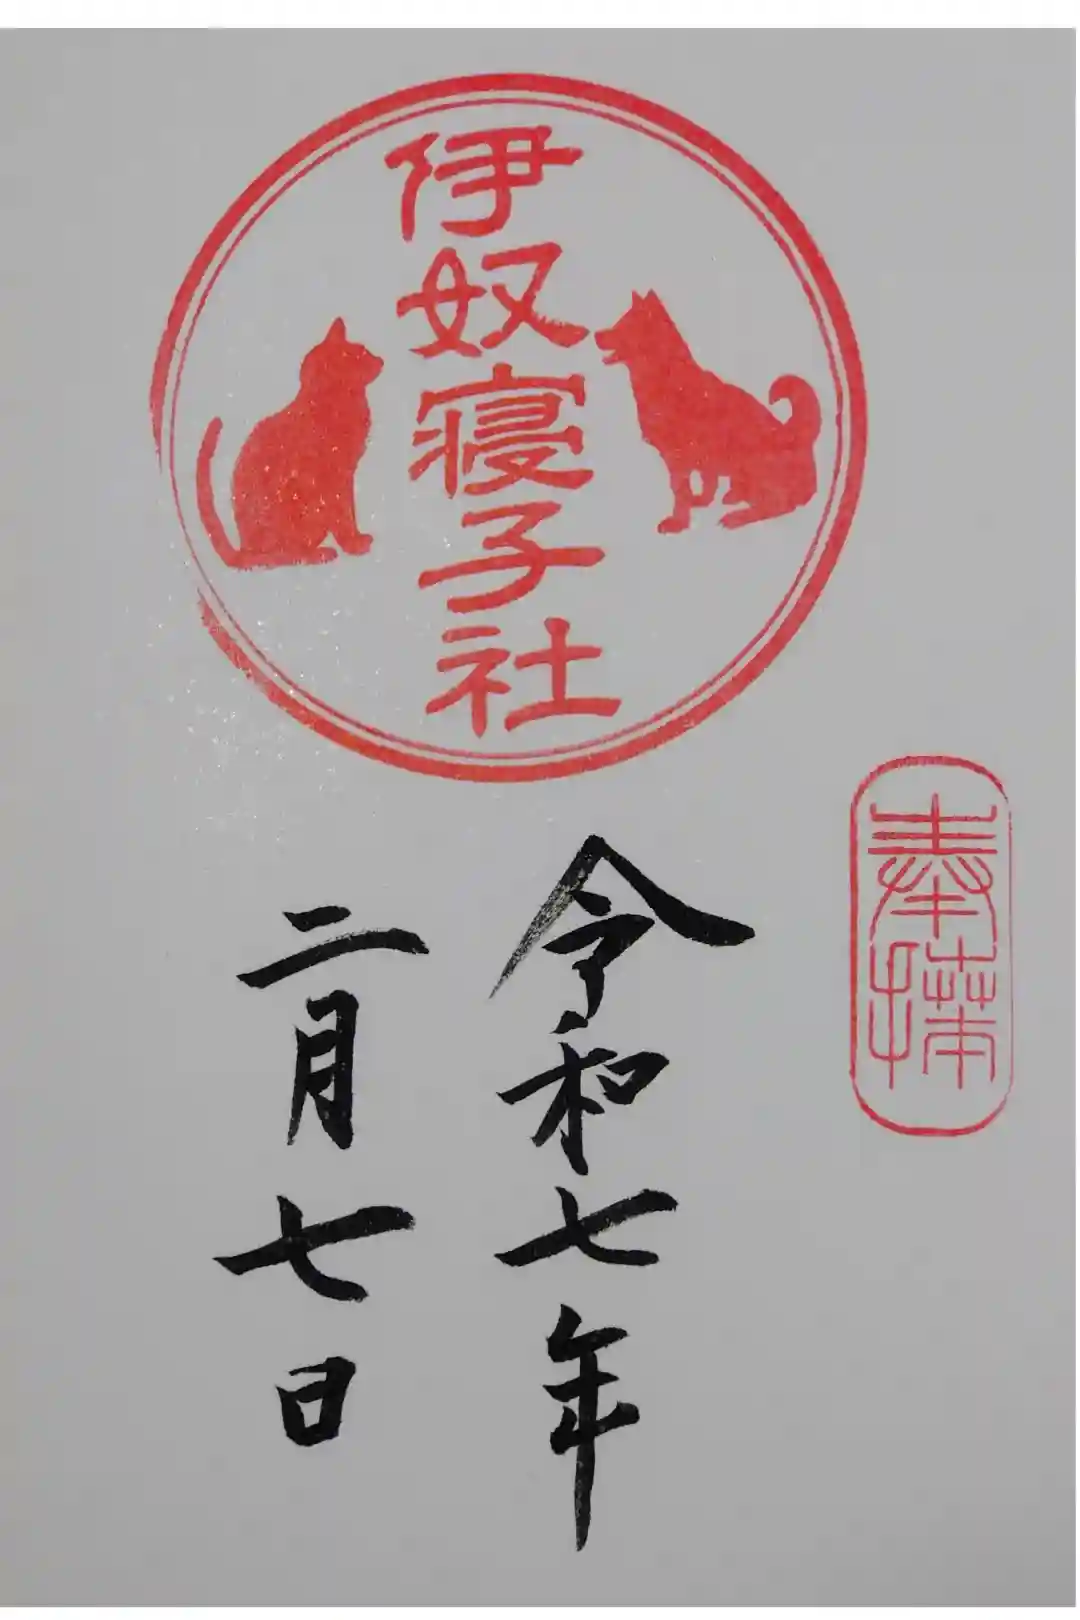 伊奴寝子社
奉拝
令和七年
二月七日